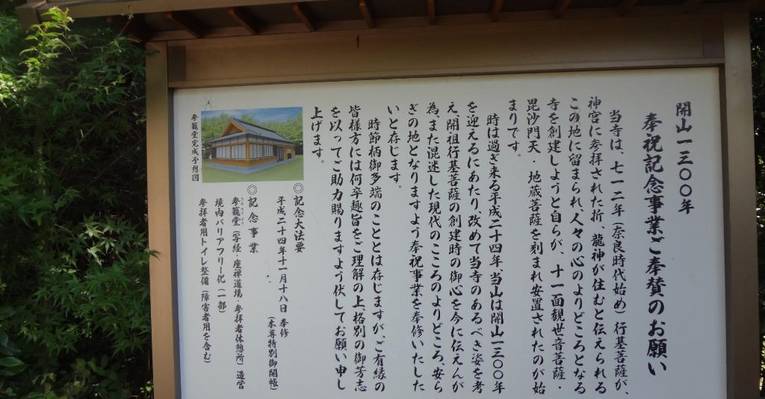 開山一三〇〇年
奉祝記念事業ご奉賛のお願い
当寺は、七一二年（奈良時代始め）行基菩薩が、
神宮に参拝された折、龍神が住むと伝えられる
この地に留まられ、人々の心のよりどころとなる
寺を創建しようと自らが、十一面観世音菩薩・
毘沙門天・地蔵菩薩を刻まれ安置されたのが始
まりです。
時は過ぎ来る平成二十四年、当山は開山一三〇〇年
を迎えるにあたり、改めて当寺のあるべき姿を考
え、開祖行基菩薩の創建時の御心を今に伝えんが
為、また混迷した現代のこころのよりどころ、安ら
ぎの地となりますよう奉祝事業を奉修いたした
いと存じます。
時節柄御多端のこととは存じますが、ご有縁の
皆様方には何卒趣旨をご理解の上格別の御芳志
を以ってご助力賜りますよう伏してお願い申し
上げます。
◎記念大法要
平成二十四年十一月十八日 奉修
（本尊特別御開帳）
◎記念事業
参籠堂（写経・座禅道場・参拝者休憩所）造営
境内バリアフリー化（一部）
参拝者用トイレ整備（障害者用を含む）
参籠堂完成予想図